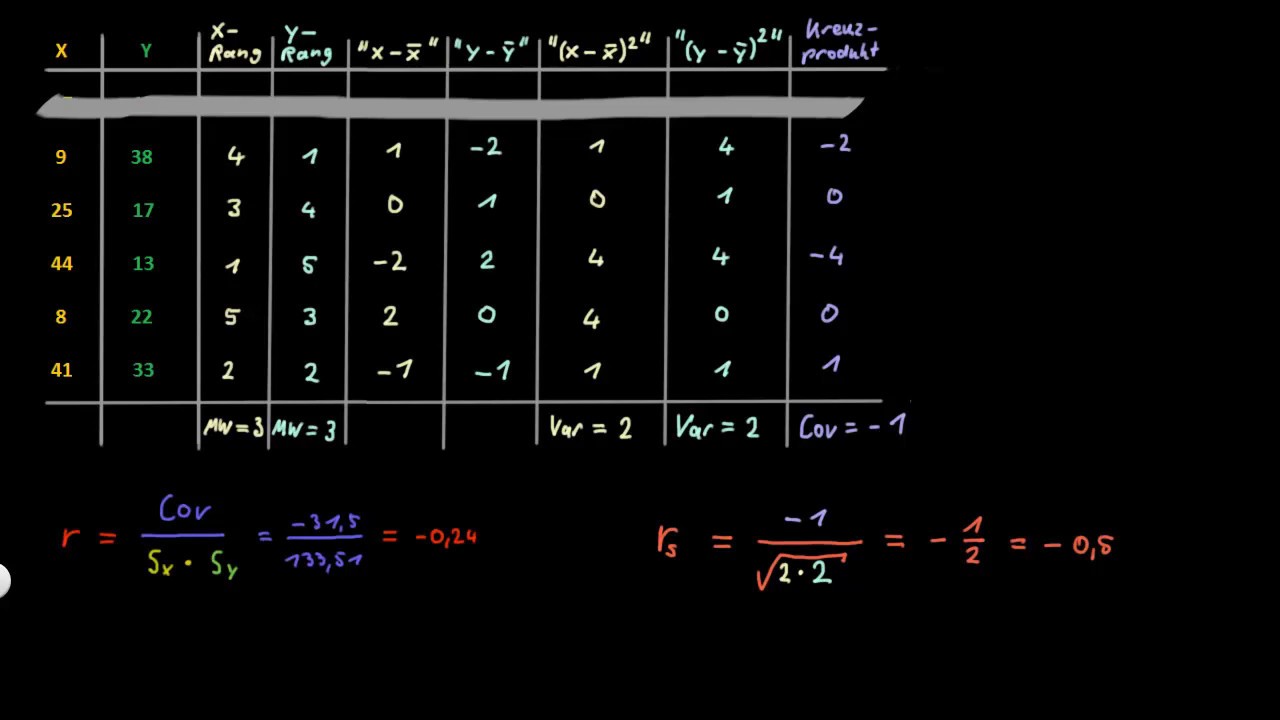 X Y X-Rang Y-Rang "x - x̄" "y - ȳ" "(x - x̄)²" "(y - ȳ)²" Kreuz-produkt
9 38 4 1 1 -2 1 4 -2
25 17 3 4 0 1 0 1 0
44 13 1 5 -2 2 4 4 -4
8 22 5 3 2 0 4 0 0
41 33 2 2 -1 -1 1 1 1
MW = 3 MW = 3 Var = 2 Var = 2 Cov = -1
r = Cov / (Sx · Sy) = -31,5 / 133,51 = -0,24
rs = -1 / √(2 · 2) = - 1/2 = - 0,5